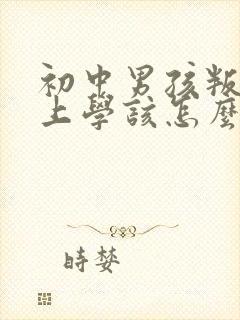 初中男孩叛
上學該怎麼
時婪